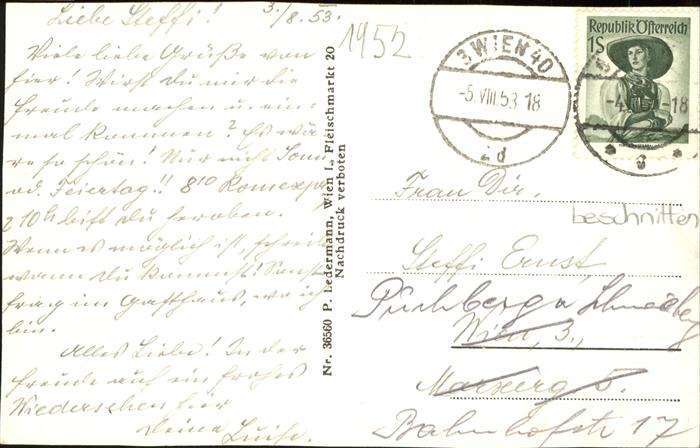 Liebe Steffi! 3./8. 53.
Viele liebe Grüße von
hier! Wirst du mir die
Freude machen u. ein-
mal kommen? Es wä-
re so schön! Nur nicht Sonn
od. Feiertag!! 8¹⁰
10h bist du heroben.
Wenn es möglich ist, schreib
wann du kommst! Sonst
frag im Gasthaus, wo ich
bin.
Alles Liebe! In der
Freude auf ein frohes
Wiedersehen hier
Deine Luise.
1952
Nr. 36560 P. Ledermann, Wien I., Fleischmarkt 20
Nachdruck verboten
3 WIEN 40
-5. VIII. 53. 18
2d
Republik Österreich
1S
-18
Frau Dir.
beschnitten
Steffi Ernst,
Puchberg a Schneeberg
Wien, 3.,
5.
Bahnhofstr 17